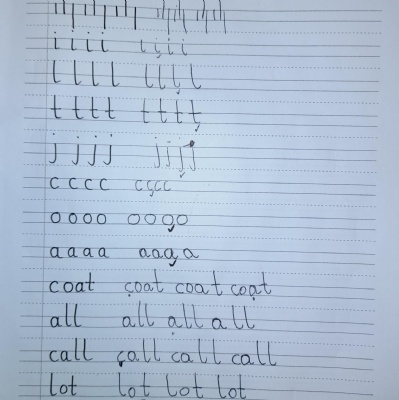 i i i i i i i i
l l l l l l l l
t t t t t t t t
j j j j j j j j
c c c c c c c c
o o o o o o o o
a a a a a a a a
coat coat coat coat
all all all all
call call call call
lot lot lot lot